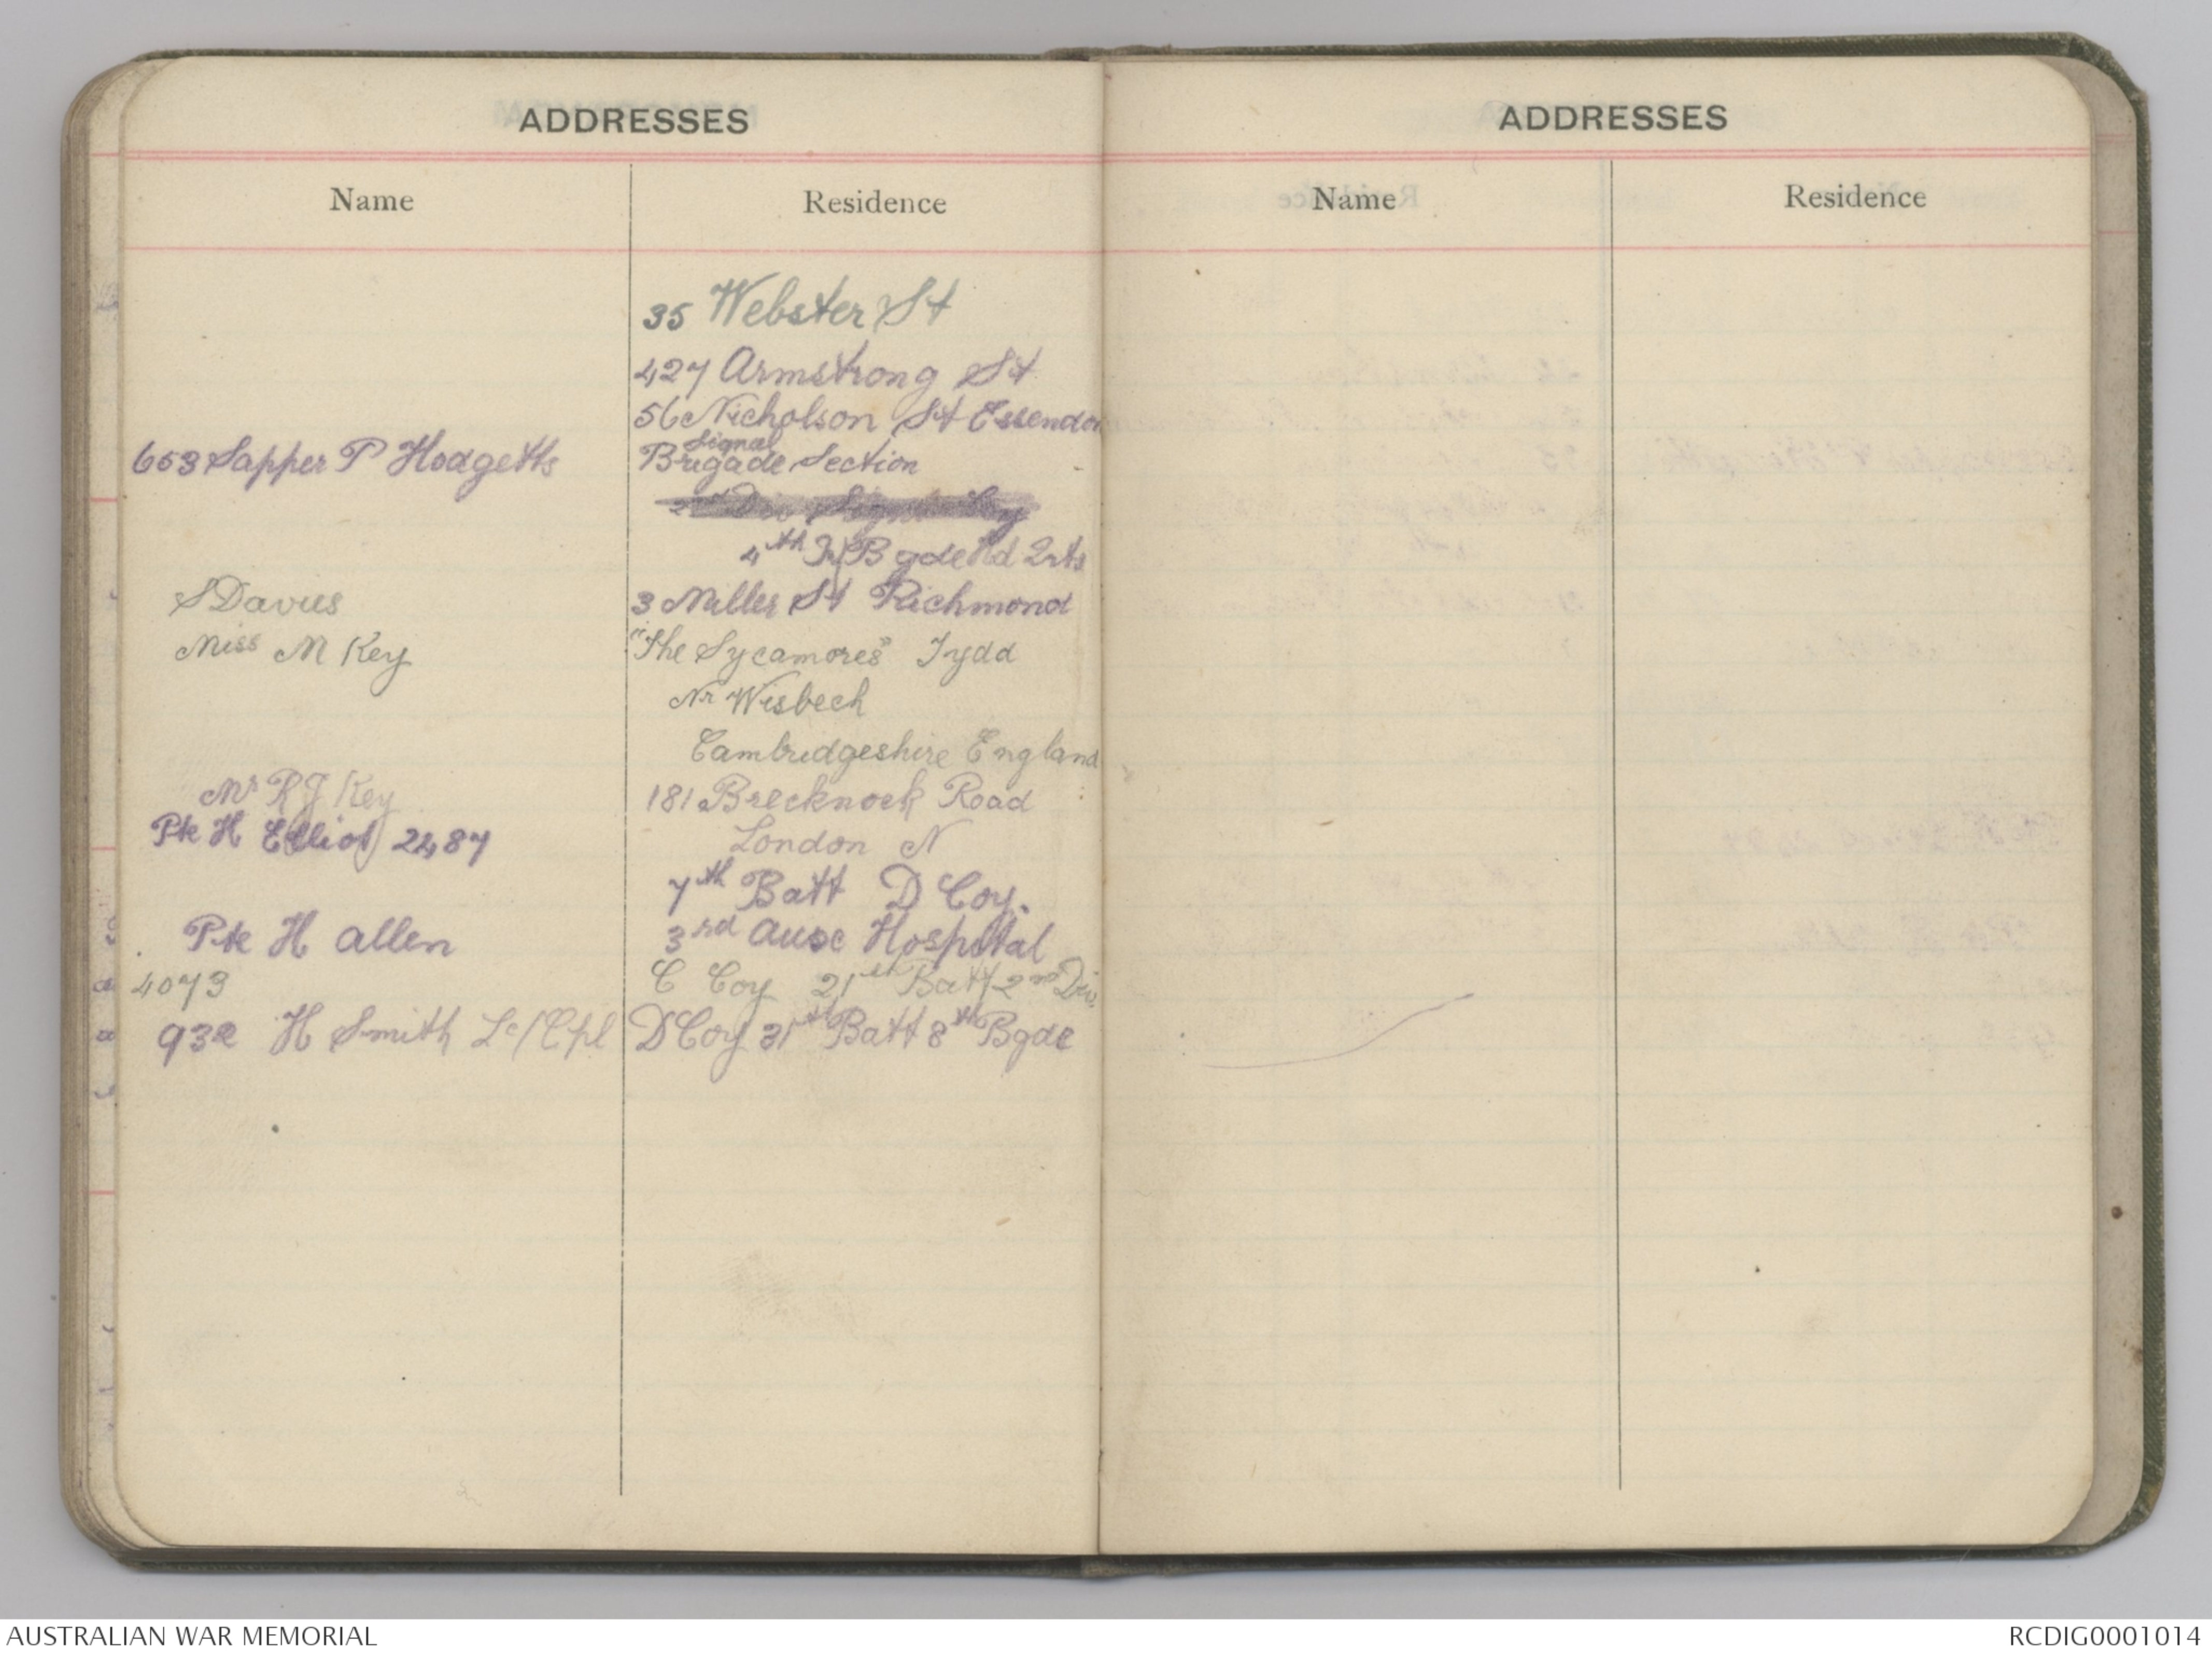 ADDRESSES
Name Residence
35 Webster St
427 Armstrong St
56 Nicholson St Essendon
Signal
653 Sapper P Hodgetts Brigade Section
2nd Div Signal Coy
4th Inf Bgde Hd Qrts
S Davies 3 Miller St Richmond
Miss M Key "The Sycamores" Tydd
Nr Wisbech
Cambridgeshire England
Mr R J Key 181 Brecknock Road
Pte H Elliot 2487 London N
7th Batt D Coy.
Pte H Allen 3rd Auxc Hospital
4073 C Coy 21st Batt 2nd Div.
932 H Smith Lc/Cpl D Coy 31st Batt 8th Bgde
ADDRESSES
Name Residence
AUSTRALIAN WAR MEMORIAL
RCDIG0001014